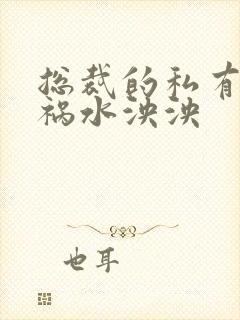 总裁的私有
祸水泱泱
也耳